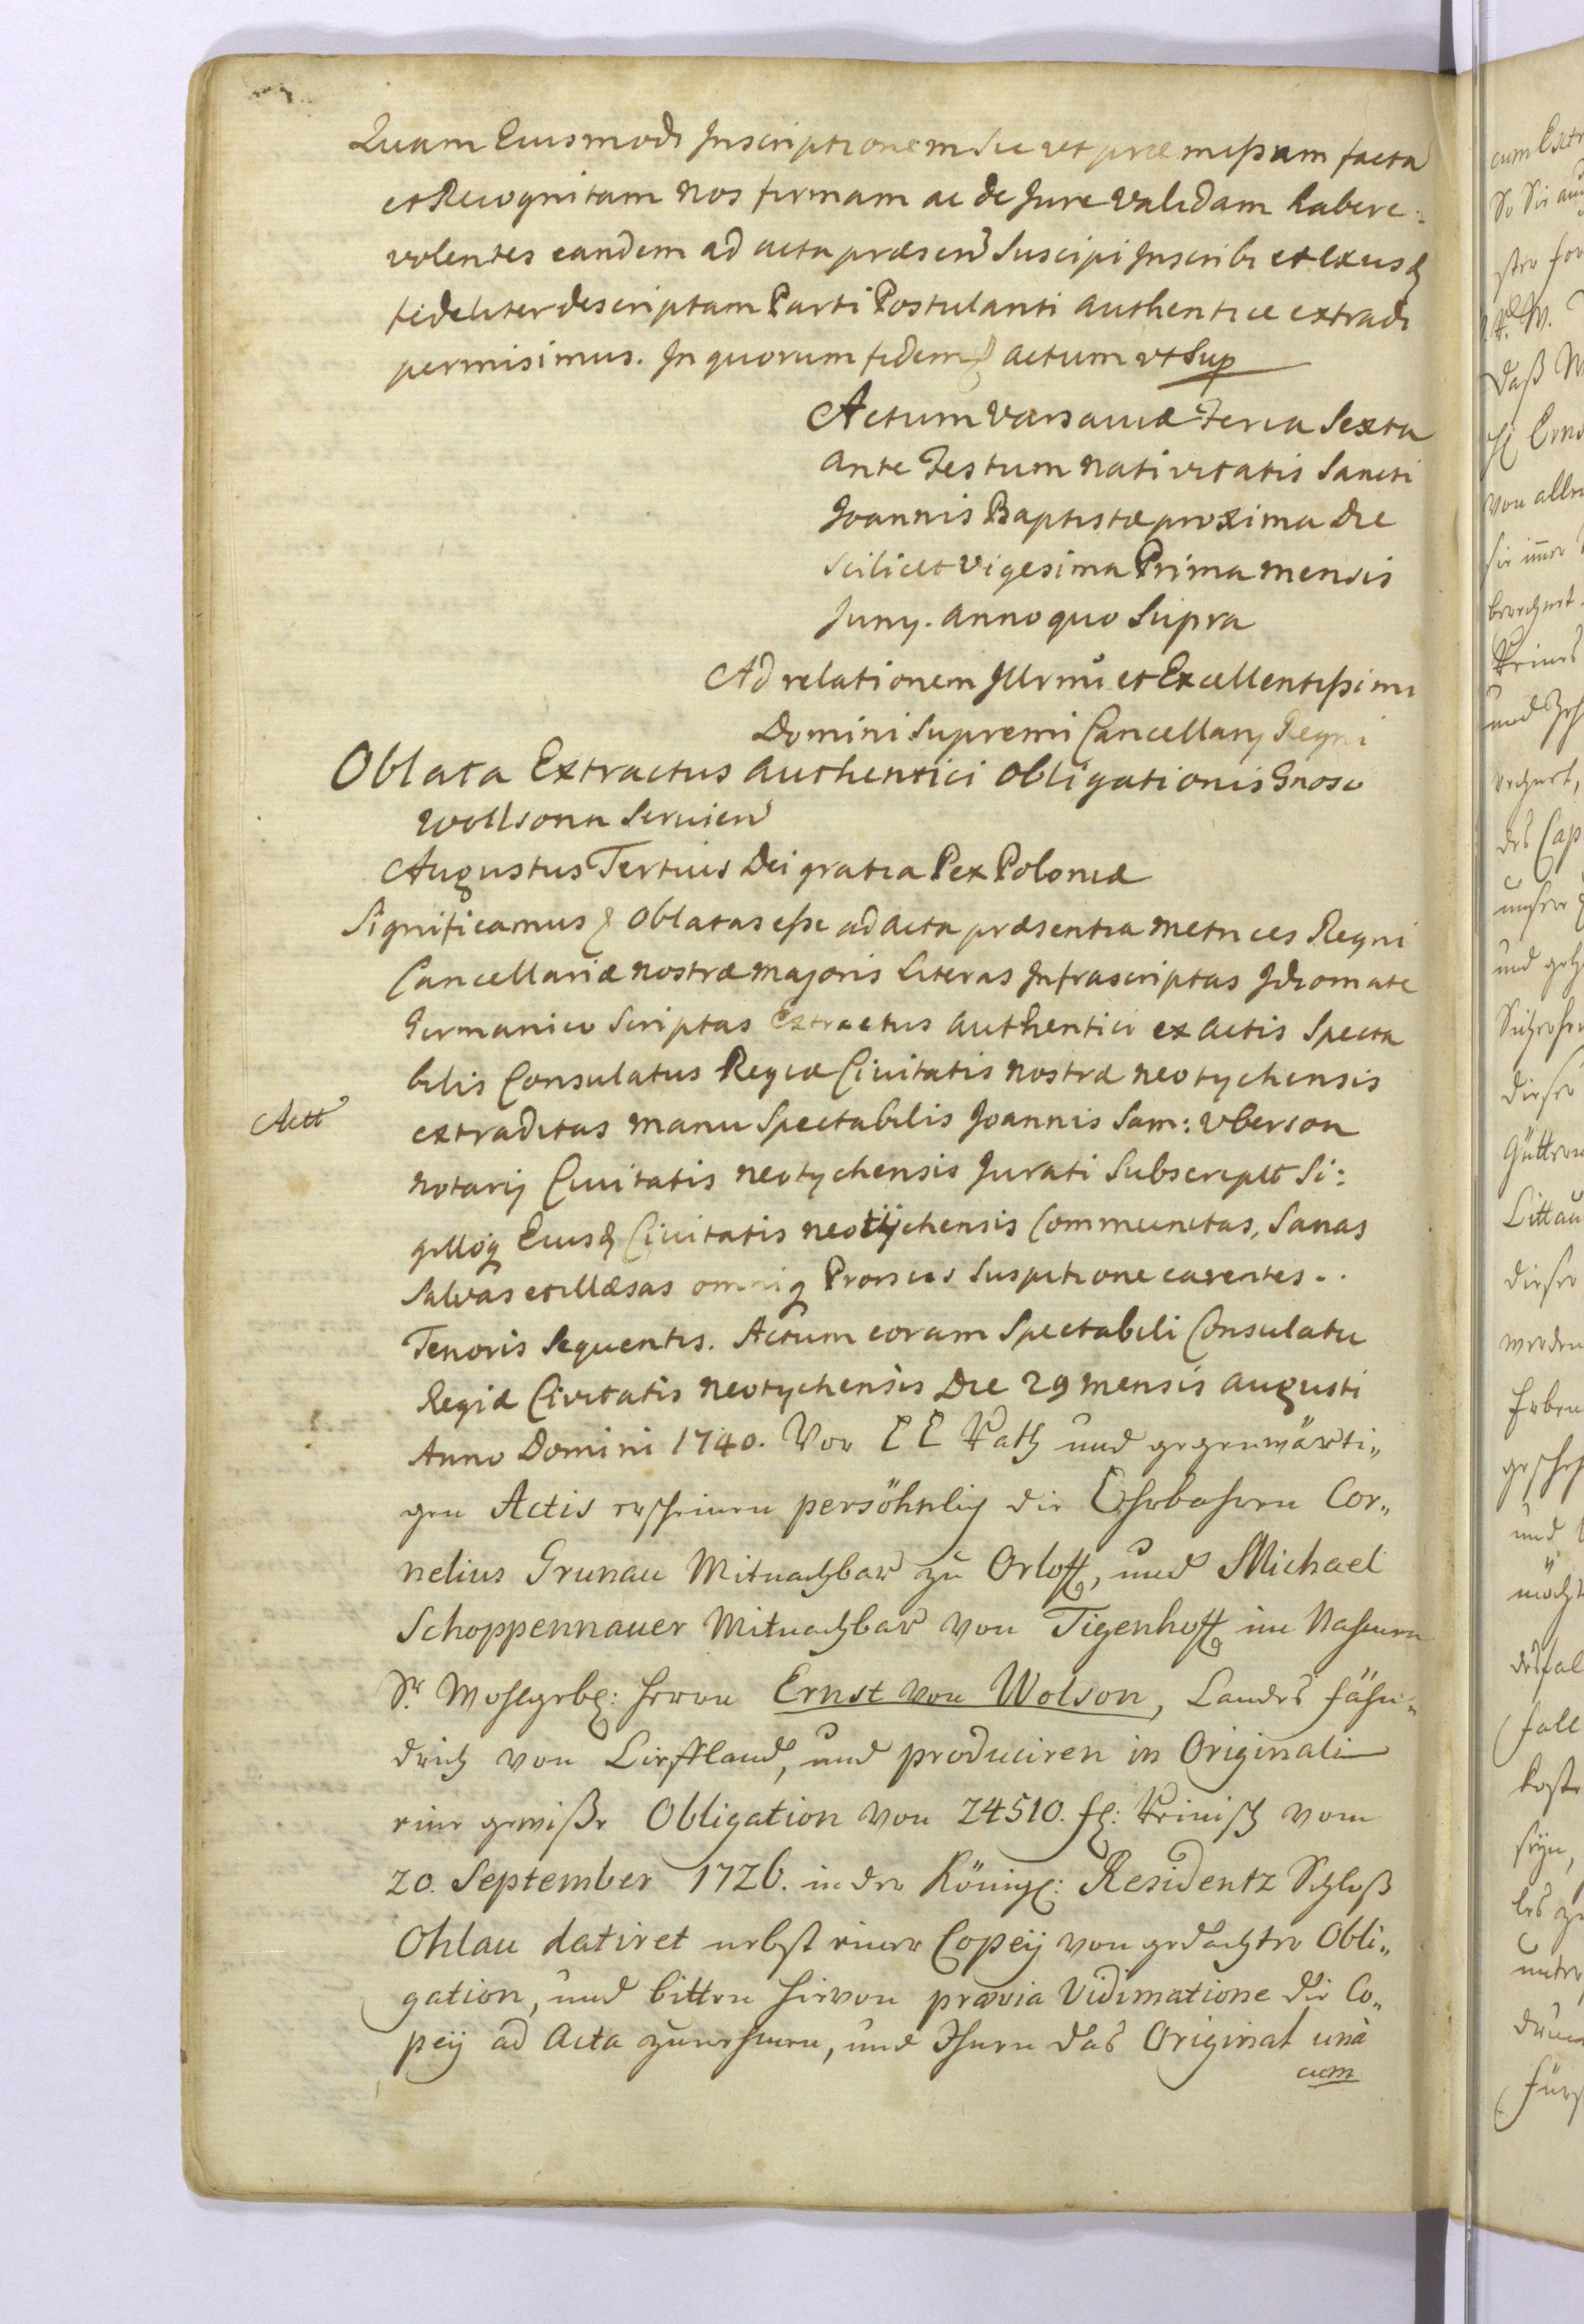 Quam Eiusmodi Inscriptionem Sic ut præmissam facta
et Recognitam nos firmam ac de Jure validam habere
volentes eandem ad acta præsen Suscipi Inscribi et ex eisd
fideliter descriptam Parti Postulanti authentice extradi
permisimus. In quorum fidem & actum ut Sup
Actum Varsaviæ Feria Sexta
ante Festum nativitatis Sancti
Joannis Baptistæ proxima die
scilicet vigesima Prima mensis
Juny. anno quo Supra
Ad relationem Illrmi et Excellentissimi
Domini Supremi Cancellarij Regni
Oblata Extractus authentici obligationis Gnoso
Wollsonn Servien
Augustus Tertius Dei gratia Rex Poloniæ
Significamus & oblatas esse ad acta præsentia metrices Regni
Cancellariæ nostræ majoris Literas Infrascriptas Idiomate
Germanico Scriptas Extractus authentici ex actis Specta
bilis Consulatus Regiæ Civitatis nostræ neotychensis
Actt
extraditas manu Spectabilis Joannis Sam: Uberson
notarij Civitatis neotychensis Jurati Subscriptt Si:
gilloq Eiusd Civitatis neotÿchensis Communitas, Sanas
Salvas et illæsas omniq Prorsus Suspitione carentes..
Tenoris Sequentis. Actum coram Spectabili Consulatu
Regiæ Civitatis neotychensis Die 29 mensis augusti
Anno Domini 1740. Vor E E Rath und gegenwärti„
gen Actis erscheinen persöhnlich die Ehrbahren Cor„
nelius Grunau Mitnachbar zu Orloff, und Michael
Schoppennauer Mitnachbar von Tigenhoff im Nahmen
Sr. Wohlgebl: Herrn Ernst von Wolson, Landes Fähn„
drich von Liefland, und produciren in Originali
eine gewiße Obligation von 24510. fl: Reinisch vom
20. September 1726. in der Königl: Residentz Schloß
Ohlau datiret nebst einer Copeÿ von gedachter Obli„
gation, und bitten hievon prævia Vidimatione die Co„
peÿ ad Acta zunehmen, und Ihnen das Original unà
cum